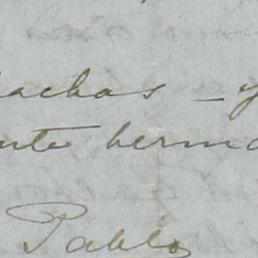 achas - y
nte herma
Pablo